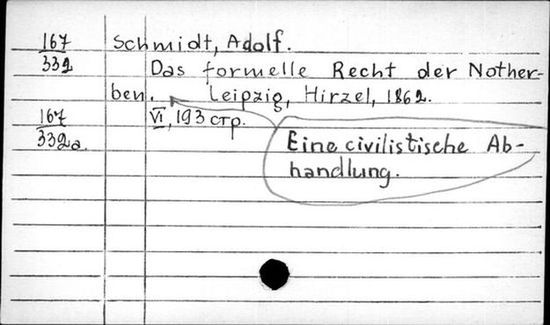 167
332
Schmidt, Adolf.
Das formelle Recht der Nother-
ben. Leipzig, Hirzel, 1862.
167
332a
VI, 193 стр.
Eine civilistische Ab-
handlung.